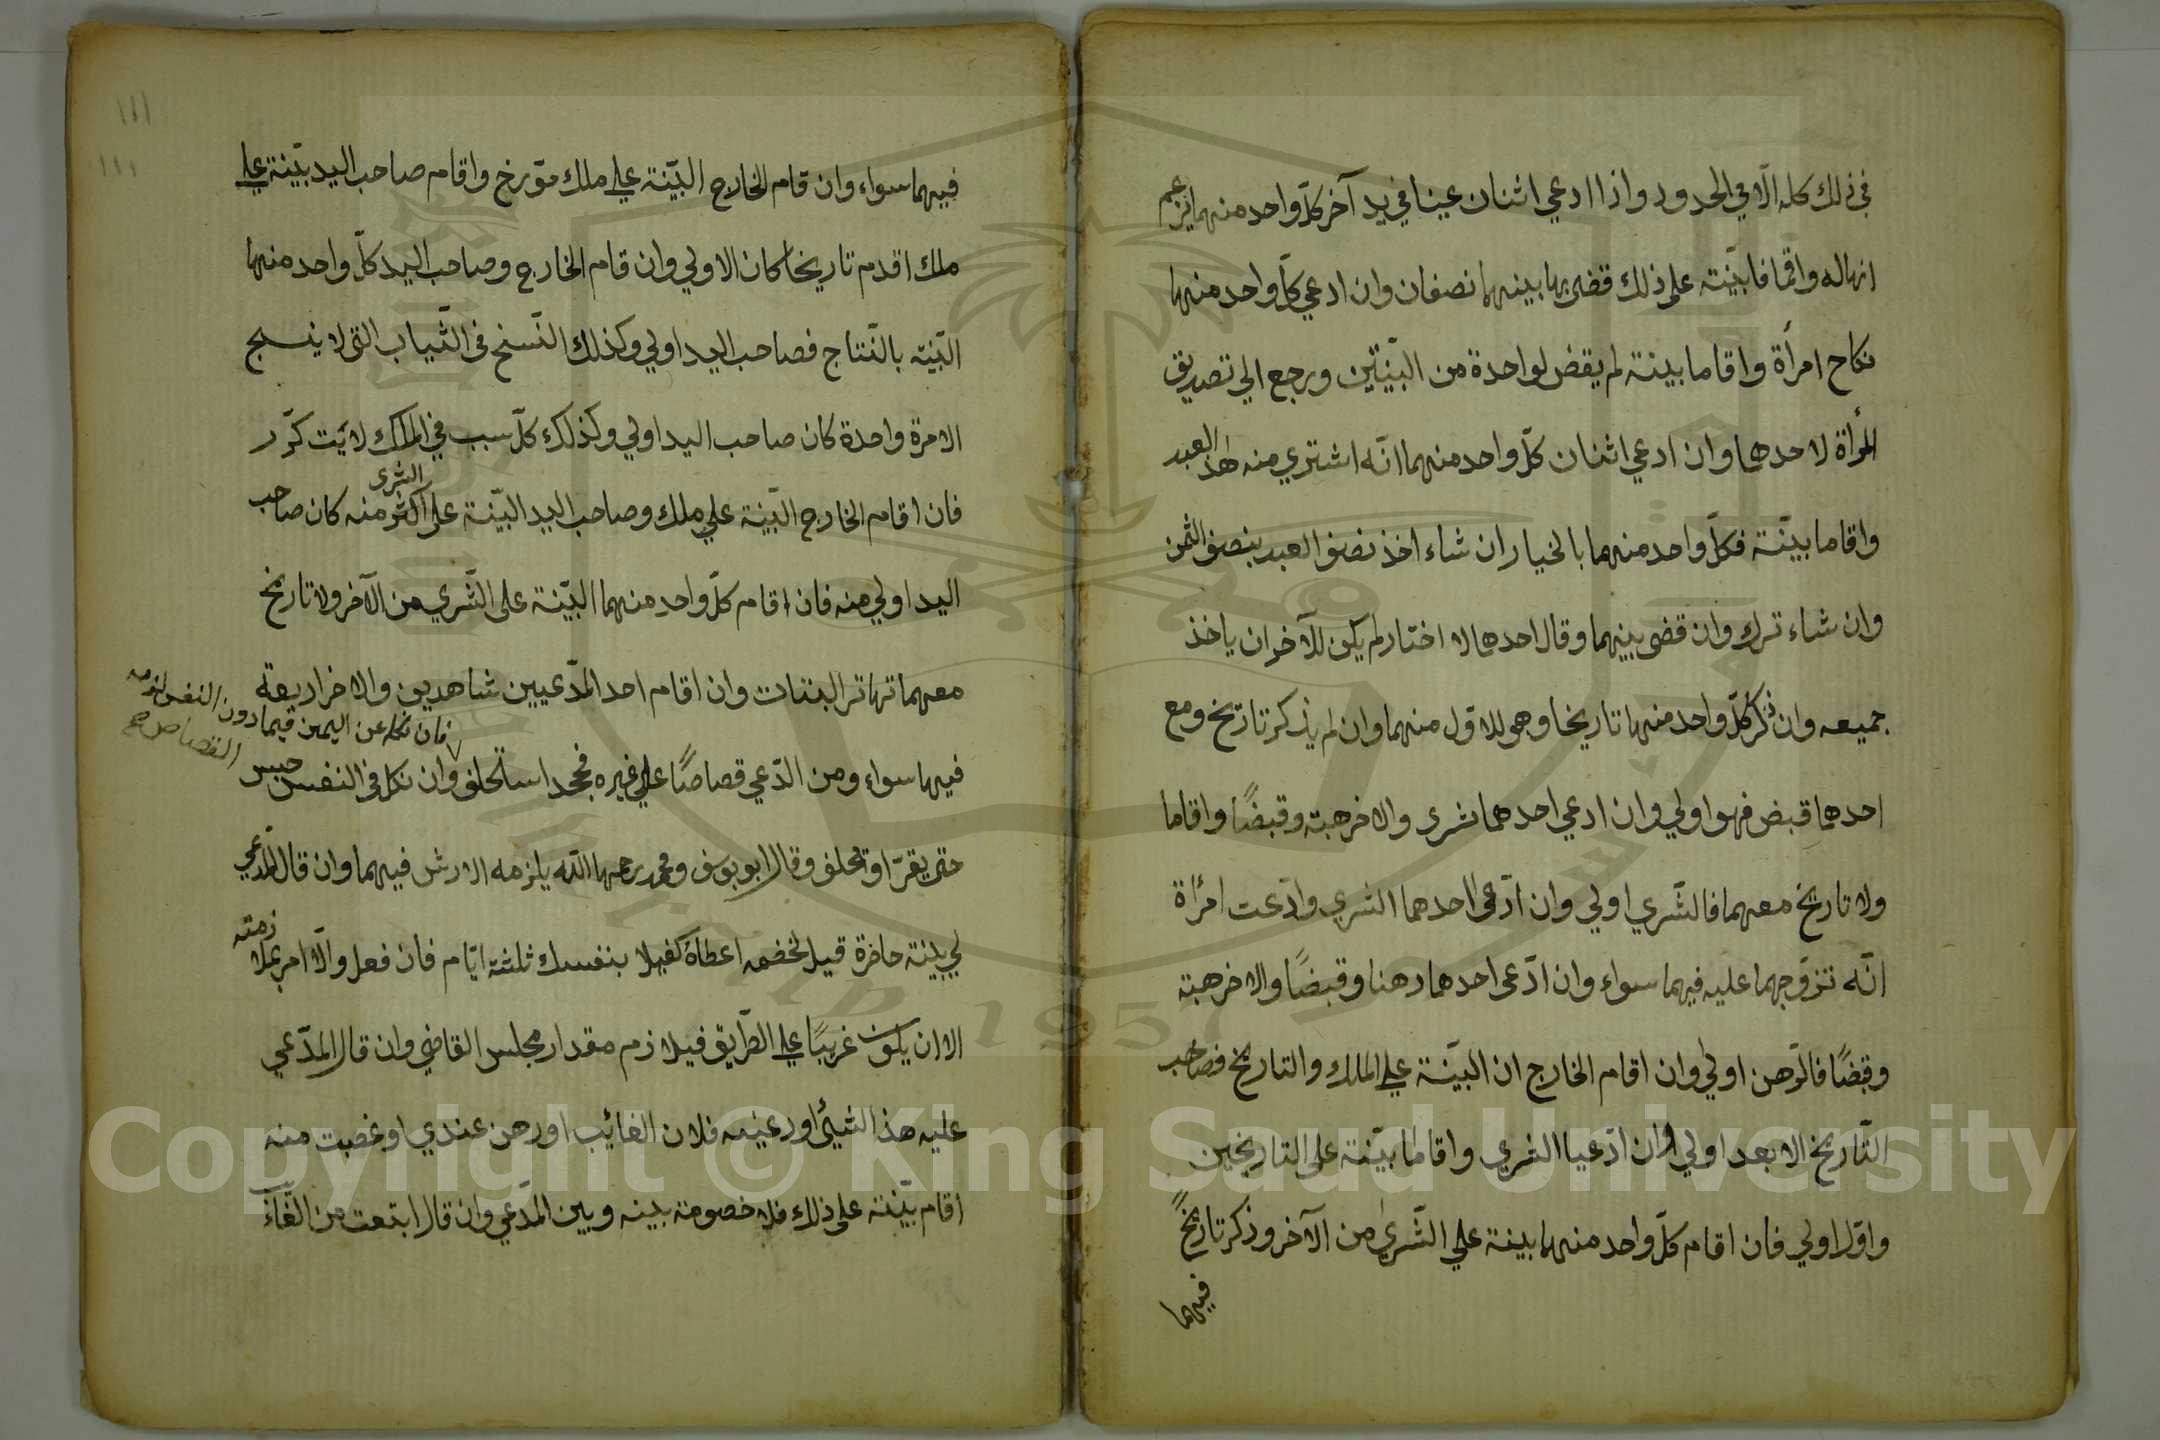 في ذلك كله الّا في الحدود واذا ادعي اثنان عينا في يد آخر كلّ واحد منهما يزعم
انها له واقاما فابيّنة على ذلك قضى بها بينهما نصفان وان ادعي كلّ واحد منهما
نكاح امرأة واقاما بينة لم يقض لواحدة من البيّنتين ويرجع الي تصديق
المرأة لاحدهما وان ادعي اثنان كلّ واحد منهما انّه اشتري منه هذا العبد
واقاما بيّنة فكلّ واحد منهما بالخيار ان شاء اخذ نصف العبد بنصف الثمن
وان شاء ترك وان قضى بينهما وقال احدهما لا اختار لم يكن للآخر ان ياخذ
جميعه وان ذكر كلّ واحد منهما تاريخا وهو للاوّل منهما وان لم يذكر تاريخ ومع
احدهما قبض فهو اولي وان ادعي احدهما شرى والاخر هبة وقبضًا واقاما
ولا تاريخ معهما فالشّري اولي وان ادّعى احدهما الشري وادّعت امرأة
انّه تزوّجها عليه فيهما سواء وان ادّعى احدهما رهنا وقبضًا والاخر هبة
وقبضًا فالرّهن اولي وان اقام الخارج ان البيّنة علي الملك والتاريخ فصاحب
التّاريخ الابعد اولي وان ادّعيا الشري واقاما بيّنة على التاريخين
واوّل اولي فان اقام كلّ واحد منهما بينة علي الشّري من الآخر وذكر تاريخًا
فيهما
١١١
١١١
فيهما سواء وان قام الخارج البيّنة علي ملك مؤرخ واقام صاحب اليد بيّنة علي
ملك اقدم تاريخا كان الاولي وان قام الخارج وصاحب اليد كلّ واحد منهما
البيّنة بالنّتاج فصاحب اليد اولي وكذلك النّسخ في الثّياب التي لا ينسج
الا مرة واحدة كان صاحب اليد اولي وكذلك كلّ سبب في الملك لا يتكرّر
الشرى
فان اقام الخارج البيّنة علي ملك وصاحب اليد البيّنة على اكثر منه كان صاحب
اليد اولي منه فان اقام كلّ واحد منهما البيّنة على الشّري من الآخر ولا تاريخ
معهما تهاتر البنتات وان اقام احد المدّعيين شاهدين والاخر اربعة
فان نكل عن اليمين فيما دون النفس لزمه
القصاص صح
فيهما سواء ومن الدّعي قصاصًا علي غيره فجحد استحلف وان نكل في النفس حبس
حتى يقرّ او يحلف وقال ابو يوسف ومحمد رحمهما الله يلزمه الارش فيهما وان قال المدّعي
لي بيّنة حاضرة قيل لخصمه اعطاه كفيلا بنفسك ثلثة ايّام فان فعل والّا امر بملازمته
الا ان يكون غريبًا علي الطّريق فيلازم مقدار مجلس القاضي وان قال المدّعي
عليه هذا الشيئ اودعنيه فلان الغائب او رهن عندي او غصبت منه
اقام بيّنة على ذلك فلا خصومة بينه وبين المدّعي وان قال ابتعت من الغائب
Copyright © King Saud University
1957